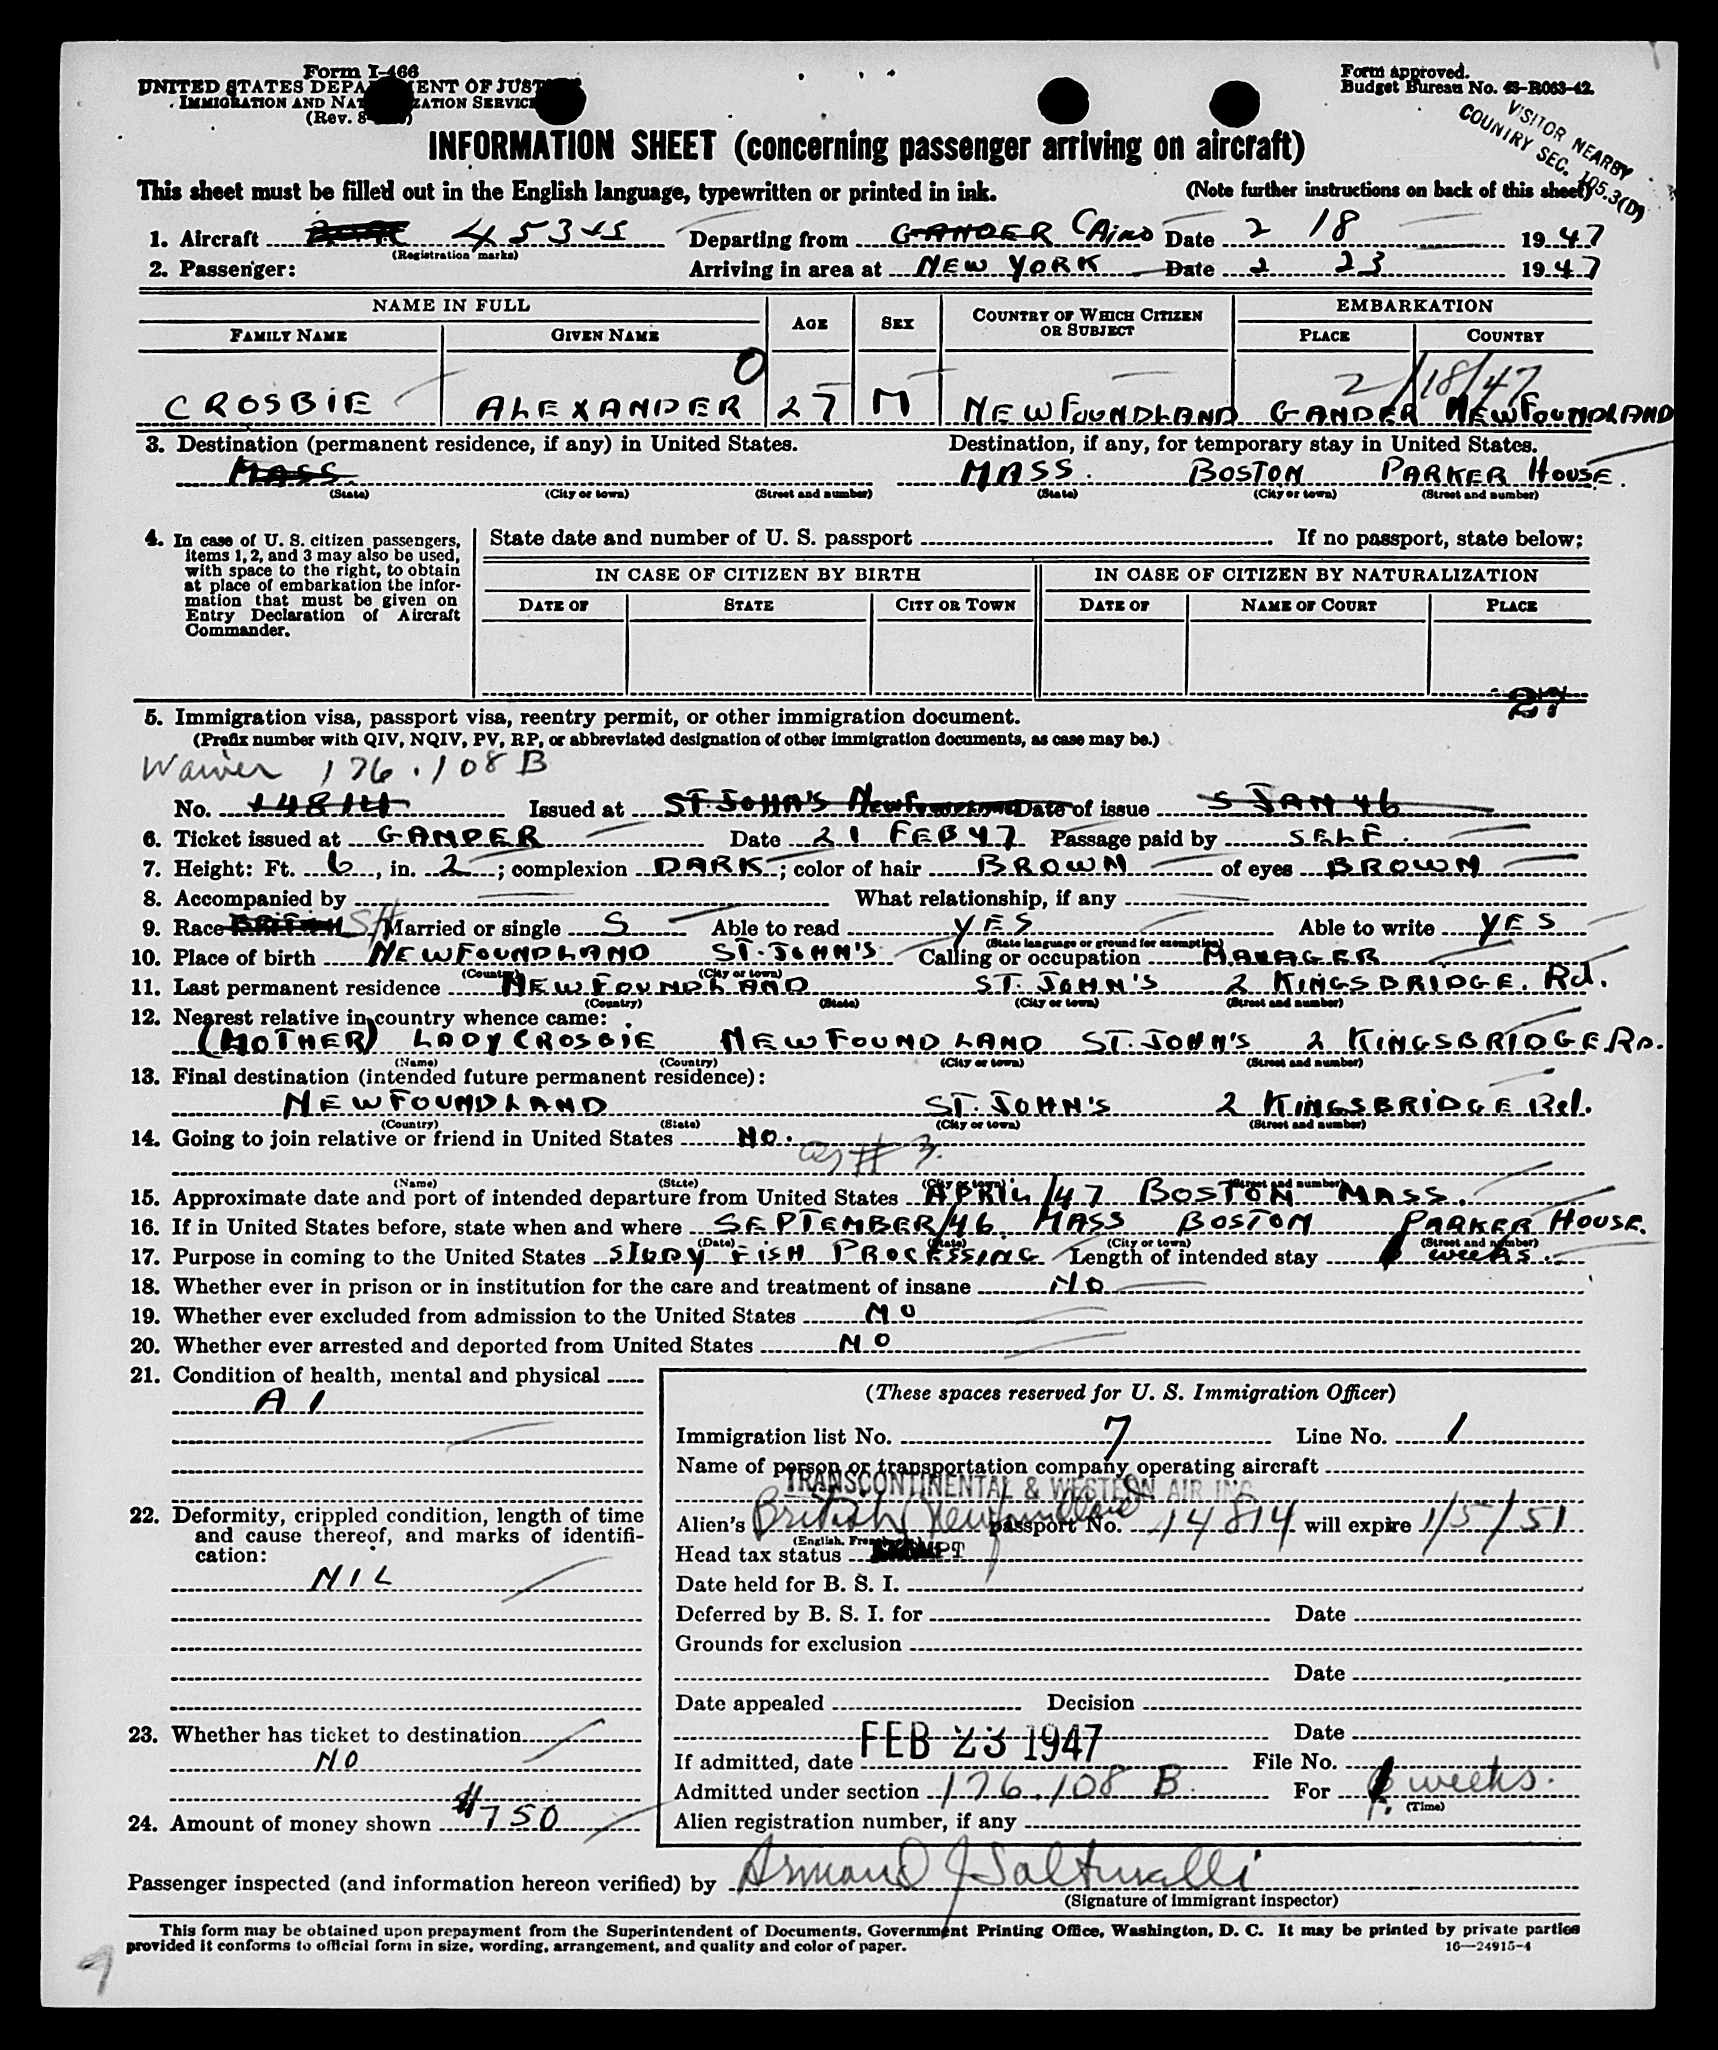 Form I-466
UNITED STATES DEPARTMENT OF JUSTICE
IMMIGRATION AND NATURALIZATION SERVICE
(Rev. 8-
Form approved.
Budget Bureau No. 43-R063-42.
VISITOR NEARBY
COUNTRY SEC. 105.3(D)
INFORMATION SHEET (concerning passenger arriving on aircraft)
This sheet must be filled out in the English language, typewritten or printed in ink. (Note further instructions on back of this sheet)
1. Aircraft 45345 Departing from GANDER CAIRO Date 2 18 1947
(Registration marks)
2. Passenger: Arriving in area at NEW YORK Date 2 23 1947
NAME IN FULL AGE SEX COUNTRY OF WHICH CITIZEN OR SUBJECT EMBARKATION
FAMILY NAME GIVEN NAME PLACE COUNTRY
0 2/18/47
CROSBIE ALEXANDER 27 M NEWFOUNDLAND GANDER NEWFOUNDLAND
3. Destination (permanent residence, if any) in United States. Destination, if any, for temporary stay in United States.
MASS. MASS. BOSTON PARKER HOUSE.
(State) (City or town) (Street and number) (State) (City or town) (Street and number)
4. In case of U. S. citizen passengers, items 1, 2, and 3 may also be used, with space to the right, to obtain at place of embarkation the information that must be given on Entry Declaration of Aircraft Commander.
State date and number of U. S. passport If no passport, state below:
IN CASE OF CITIZEN BY BIRTH IN CASE OF CITIZEN BY NATURALIZATION
DATE OF STATE CITY OR TOWN DATE OF NAME OF COURT PLACE
27
5. Immigration visa, passport visa, reentry permit, or other immigration document.
(Prefix number with QIV, NQIV, PV, RP, or abbreviated designation of other immigration documents, as case may be.)
Waiver 176.108 B
No. 14814 Issued at ST. JOHN'S Newfoundland Date of issue 5 JAN 46
6. Ticket issued at GANDER Date 21 FEB 47 Passage paid by SELF.
7. Height: Ft. 6, in. 2; complexion DARK; color of hair BROWN of eyes BROWN
8. Accompanied by What relationship, if any
9. Race BRITISH Married or single S Able to read YES Able to write YES
(State language or ground for exemption)
10. Place of birth NEWFOUNDLAND ST. JOHN'S Calling or occupation MANAGER
(Country) (City or town)
11. Last permanent residence NEWFOUNDLAND ST. JOHN'S 2 KINGSBRIDGE. Rd.
(Country) (State) (City or town) (Street and number)
12. Nearest relative in country whence came:
(MOTHER) LADY CROSBIE NEWFOUNDLAND ST. JOHN'S 2 KINGSBRIDGE RD.
(Name) (Country) (City or town) (Street and number)
13. Final destination (intended future permanent residence):
NEWFOUNDLAND ST. JOHN'S 2 KINGSBRIDGE Rd.
(Country) (State) (City or town) (Street and number)
14. Going to join relative or friend in United States NO.
as # 3.
(Name) (State) (City or town) (Street and number)
15. Approximate date and port of intended departure from United States APRIL/47 BOSTON MASS.
16. If in United States before, state when and where SEPTEMBER/46. MASS BOSTON PARKER HOUSE.
(Date) (State) (City or town) (Street and number)
17. Purpose in coming to the United States STUDY FISH PROCESSING Length of intended stay weeks.
18. Whether ever in prison or in institution for the care and treatment of insane NO
19. Whether ever excluded from admission to the United States NO
20. Whether ever arrested and deported from United States NO
21. Condition of health, mental and physical
A1
22. Deformity, crippled condition, length of time and cause thereof, and marks of identification:
NIL
23. Whether has ticket to destination
NO
24. Amount of money shown $750
(These spaces reserved for U. S. Immigration Officer)
Immigration list No. 7 Line No. 1
Name of person or transportation company operating aircraft
TRANSCONTINENTAL & WESTERN AIR INC
Alien's British Newfoundland passport No. 14814 will expire 1/5/51
Head tax status
Date held for B. S. I.
Deferred by B. S. I. for Date
Grounds for exclusion
Date
Date appealed Decision
Date
If admitted, date FEB 23 1947 File No.
Admitted under section 176.108 B. For weeks.
(Time)
Alien registration number, if any
Passenger inspected (and information hereon verified) by
(Signature of immigrant inspector)
This form may be obtained upon prepayment from the Superintendent of Documents, Government Printing Office, Washington, D. C. It may be printed by private parties
provided it conforms to official form in size, wording, arrangement, and quality and color of paper. 16—24915-4
9